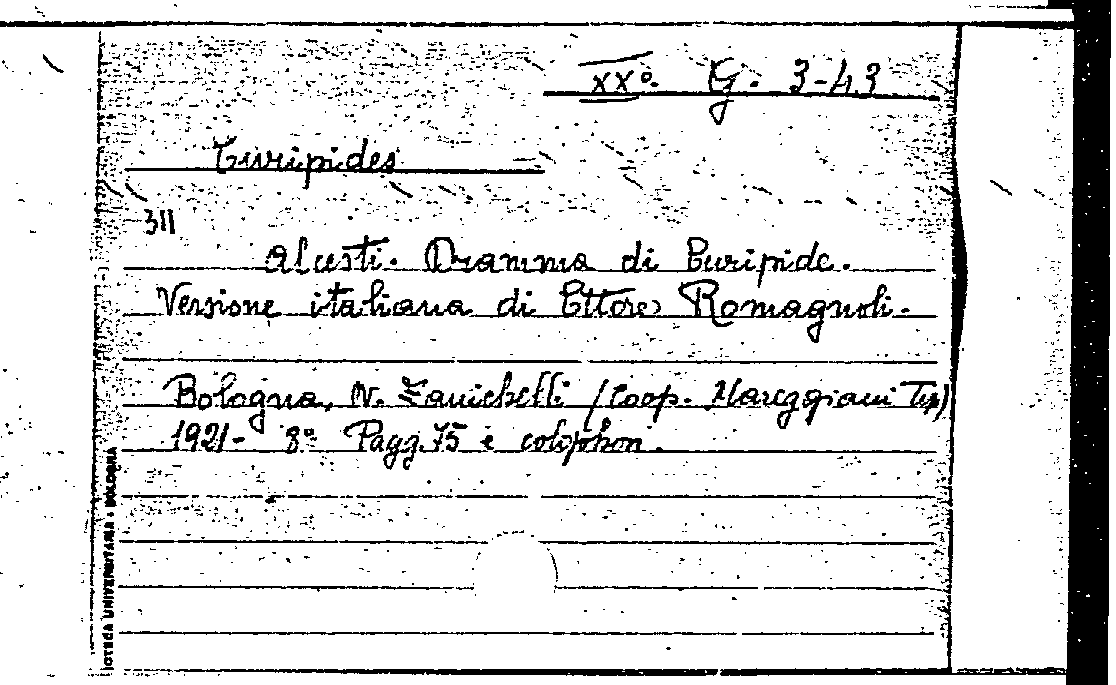 XXº. G. 3-43
Euripides
311
Alcesti. Dramma di Euripide.
Versione italiana di Ettore Romagnoli.
Bologna, N. Zanichelli (Coop. Mareggiani Tip)
1921- 8º Pagg. 75 e colophon.
OTECA UNIVERSITARIA - BOLOGNA